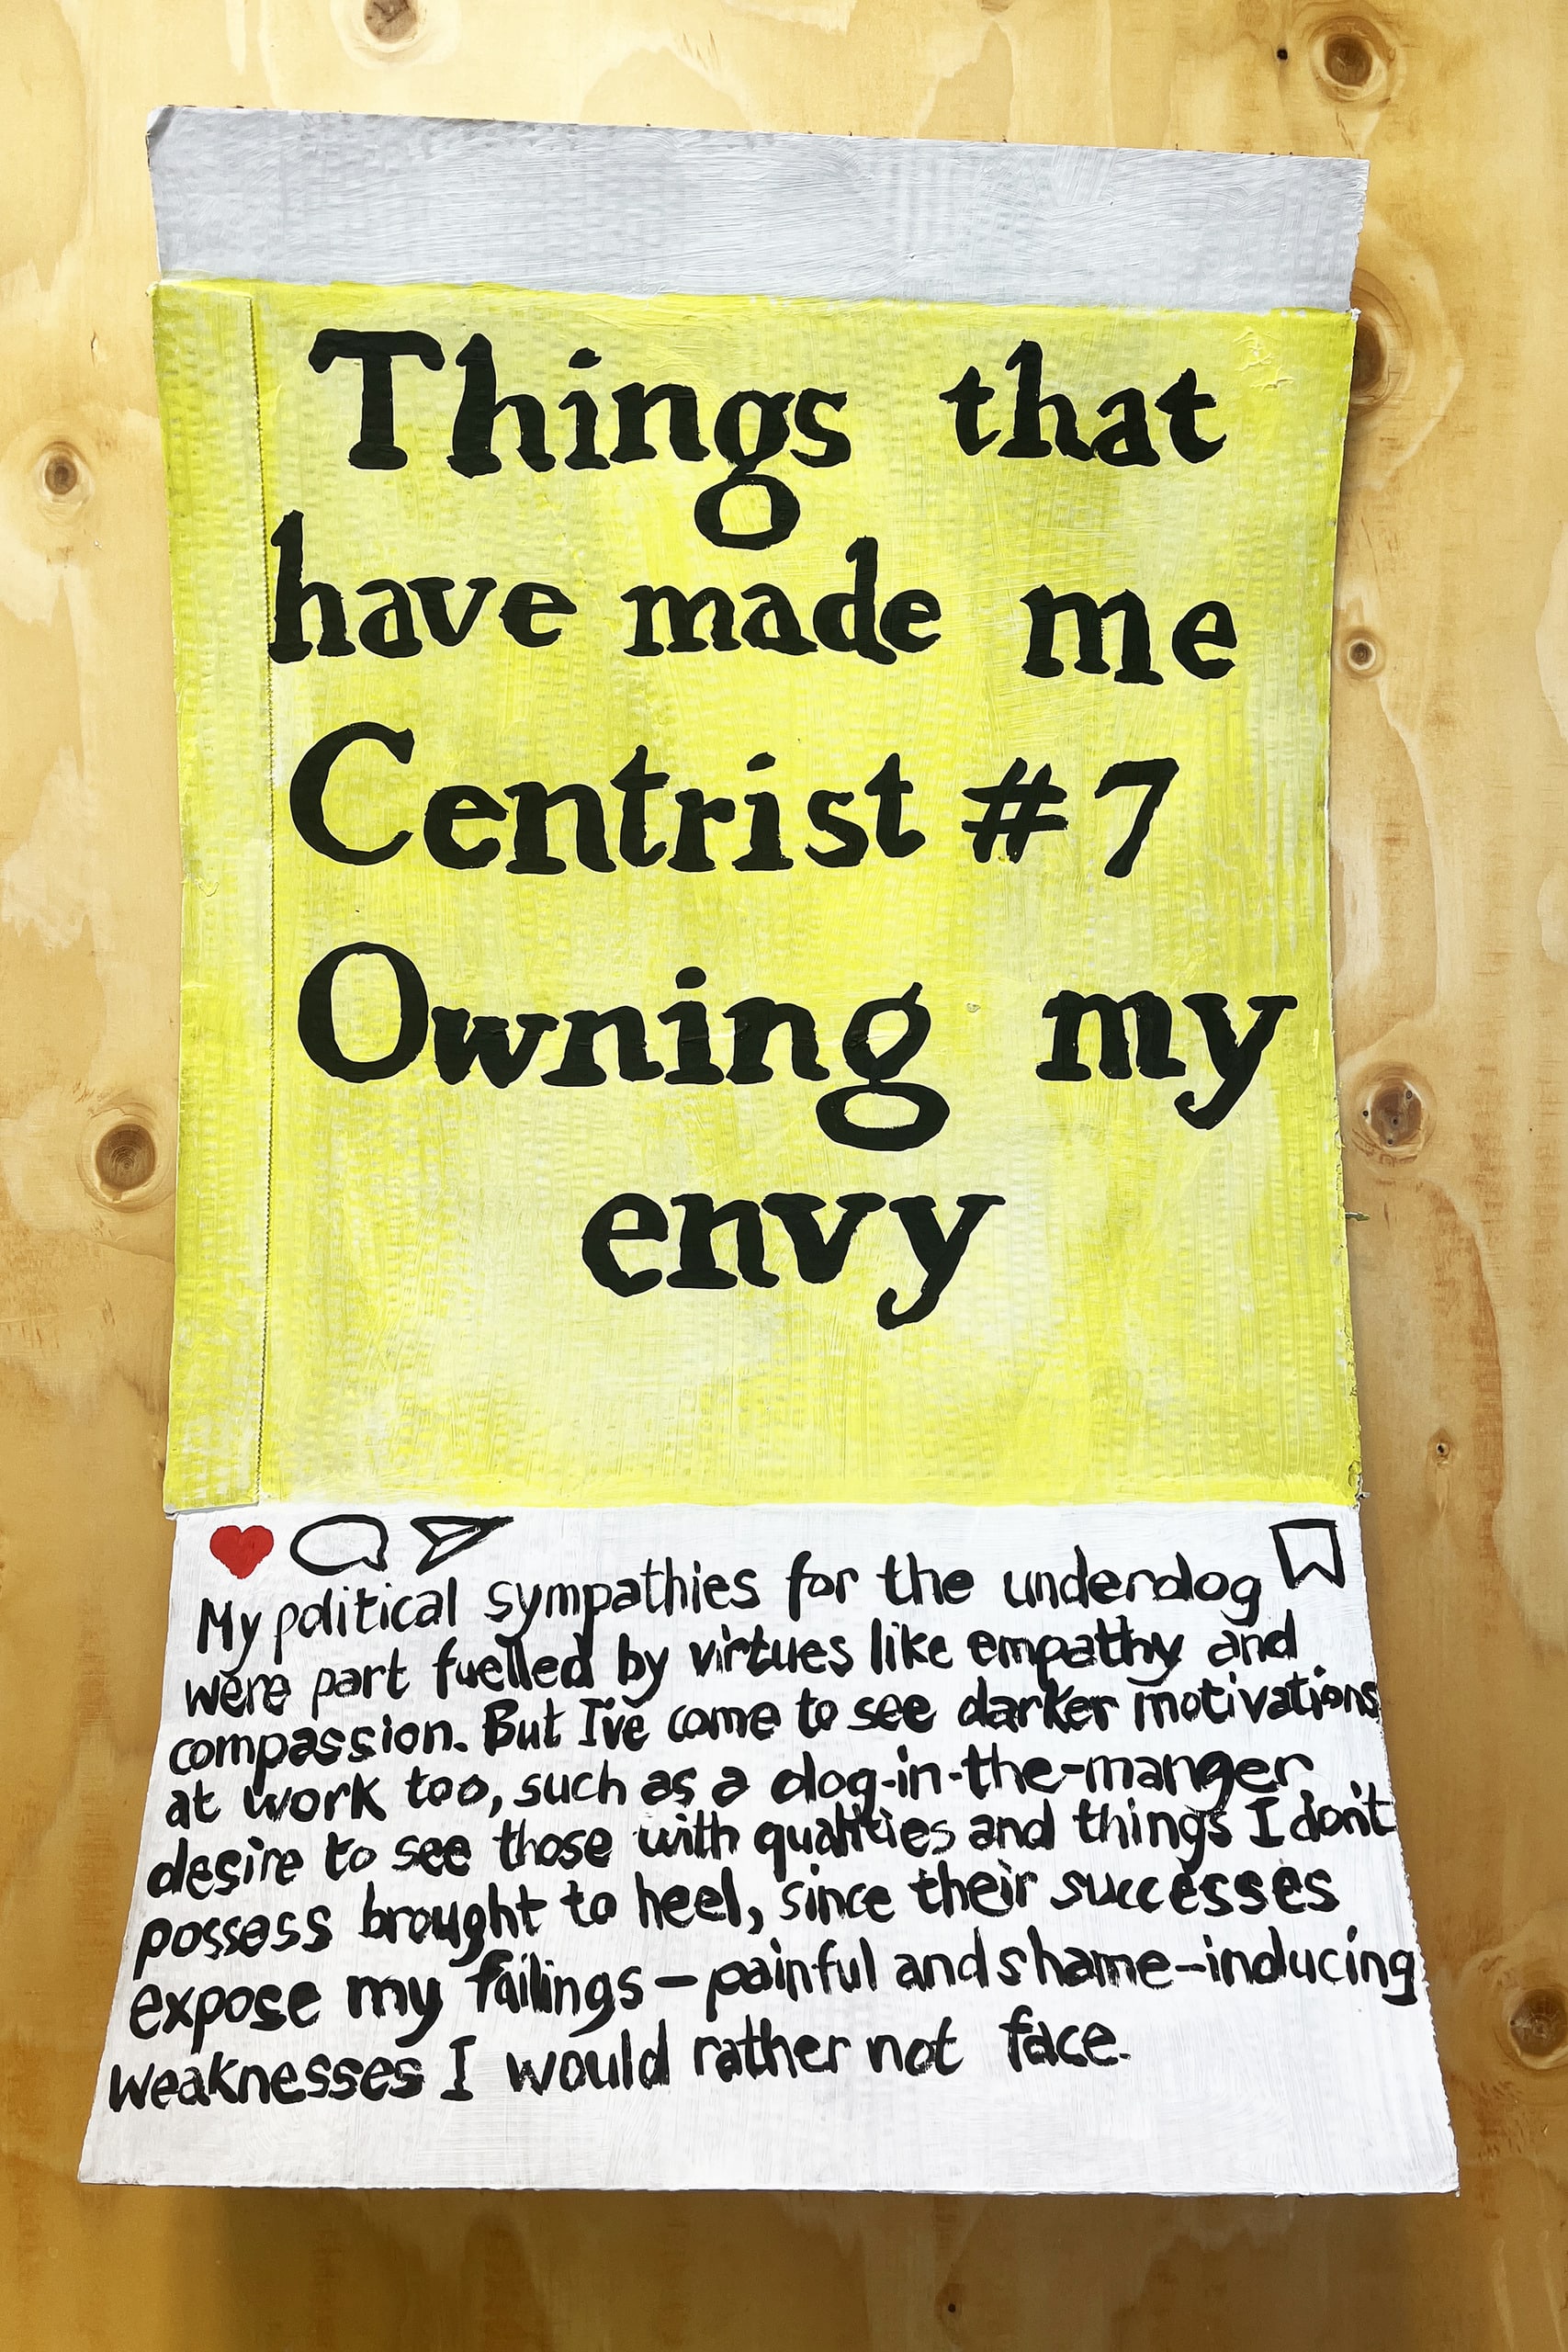 Things that
have made me
Centrist #7
Owning my
envy
My political sympathies for the underdog
were part fuelled by virtues like empathy and
compassion. But I've come to see darker motivations
at work too, such as a dog-in-the-manger
desire to see those with qualities and things I don't
possess brought to heel, since their successes
expose my failings – painful and shame-inducing
weaknesses I would rather not face.